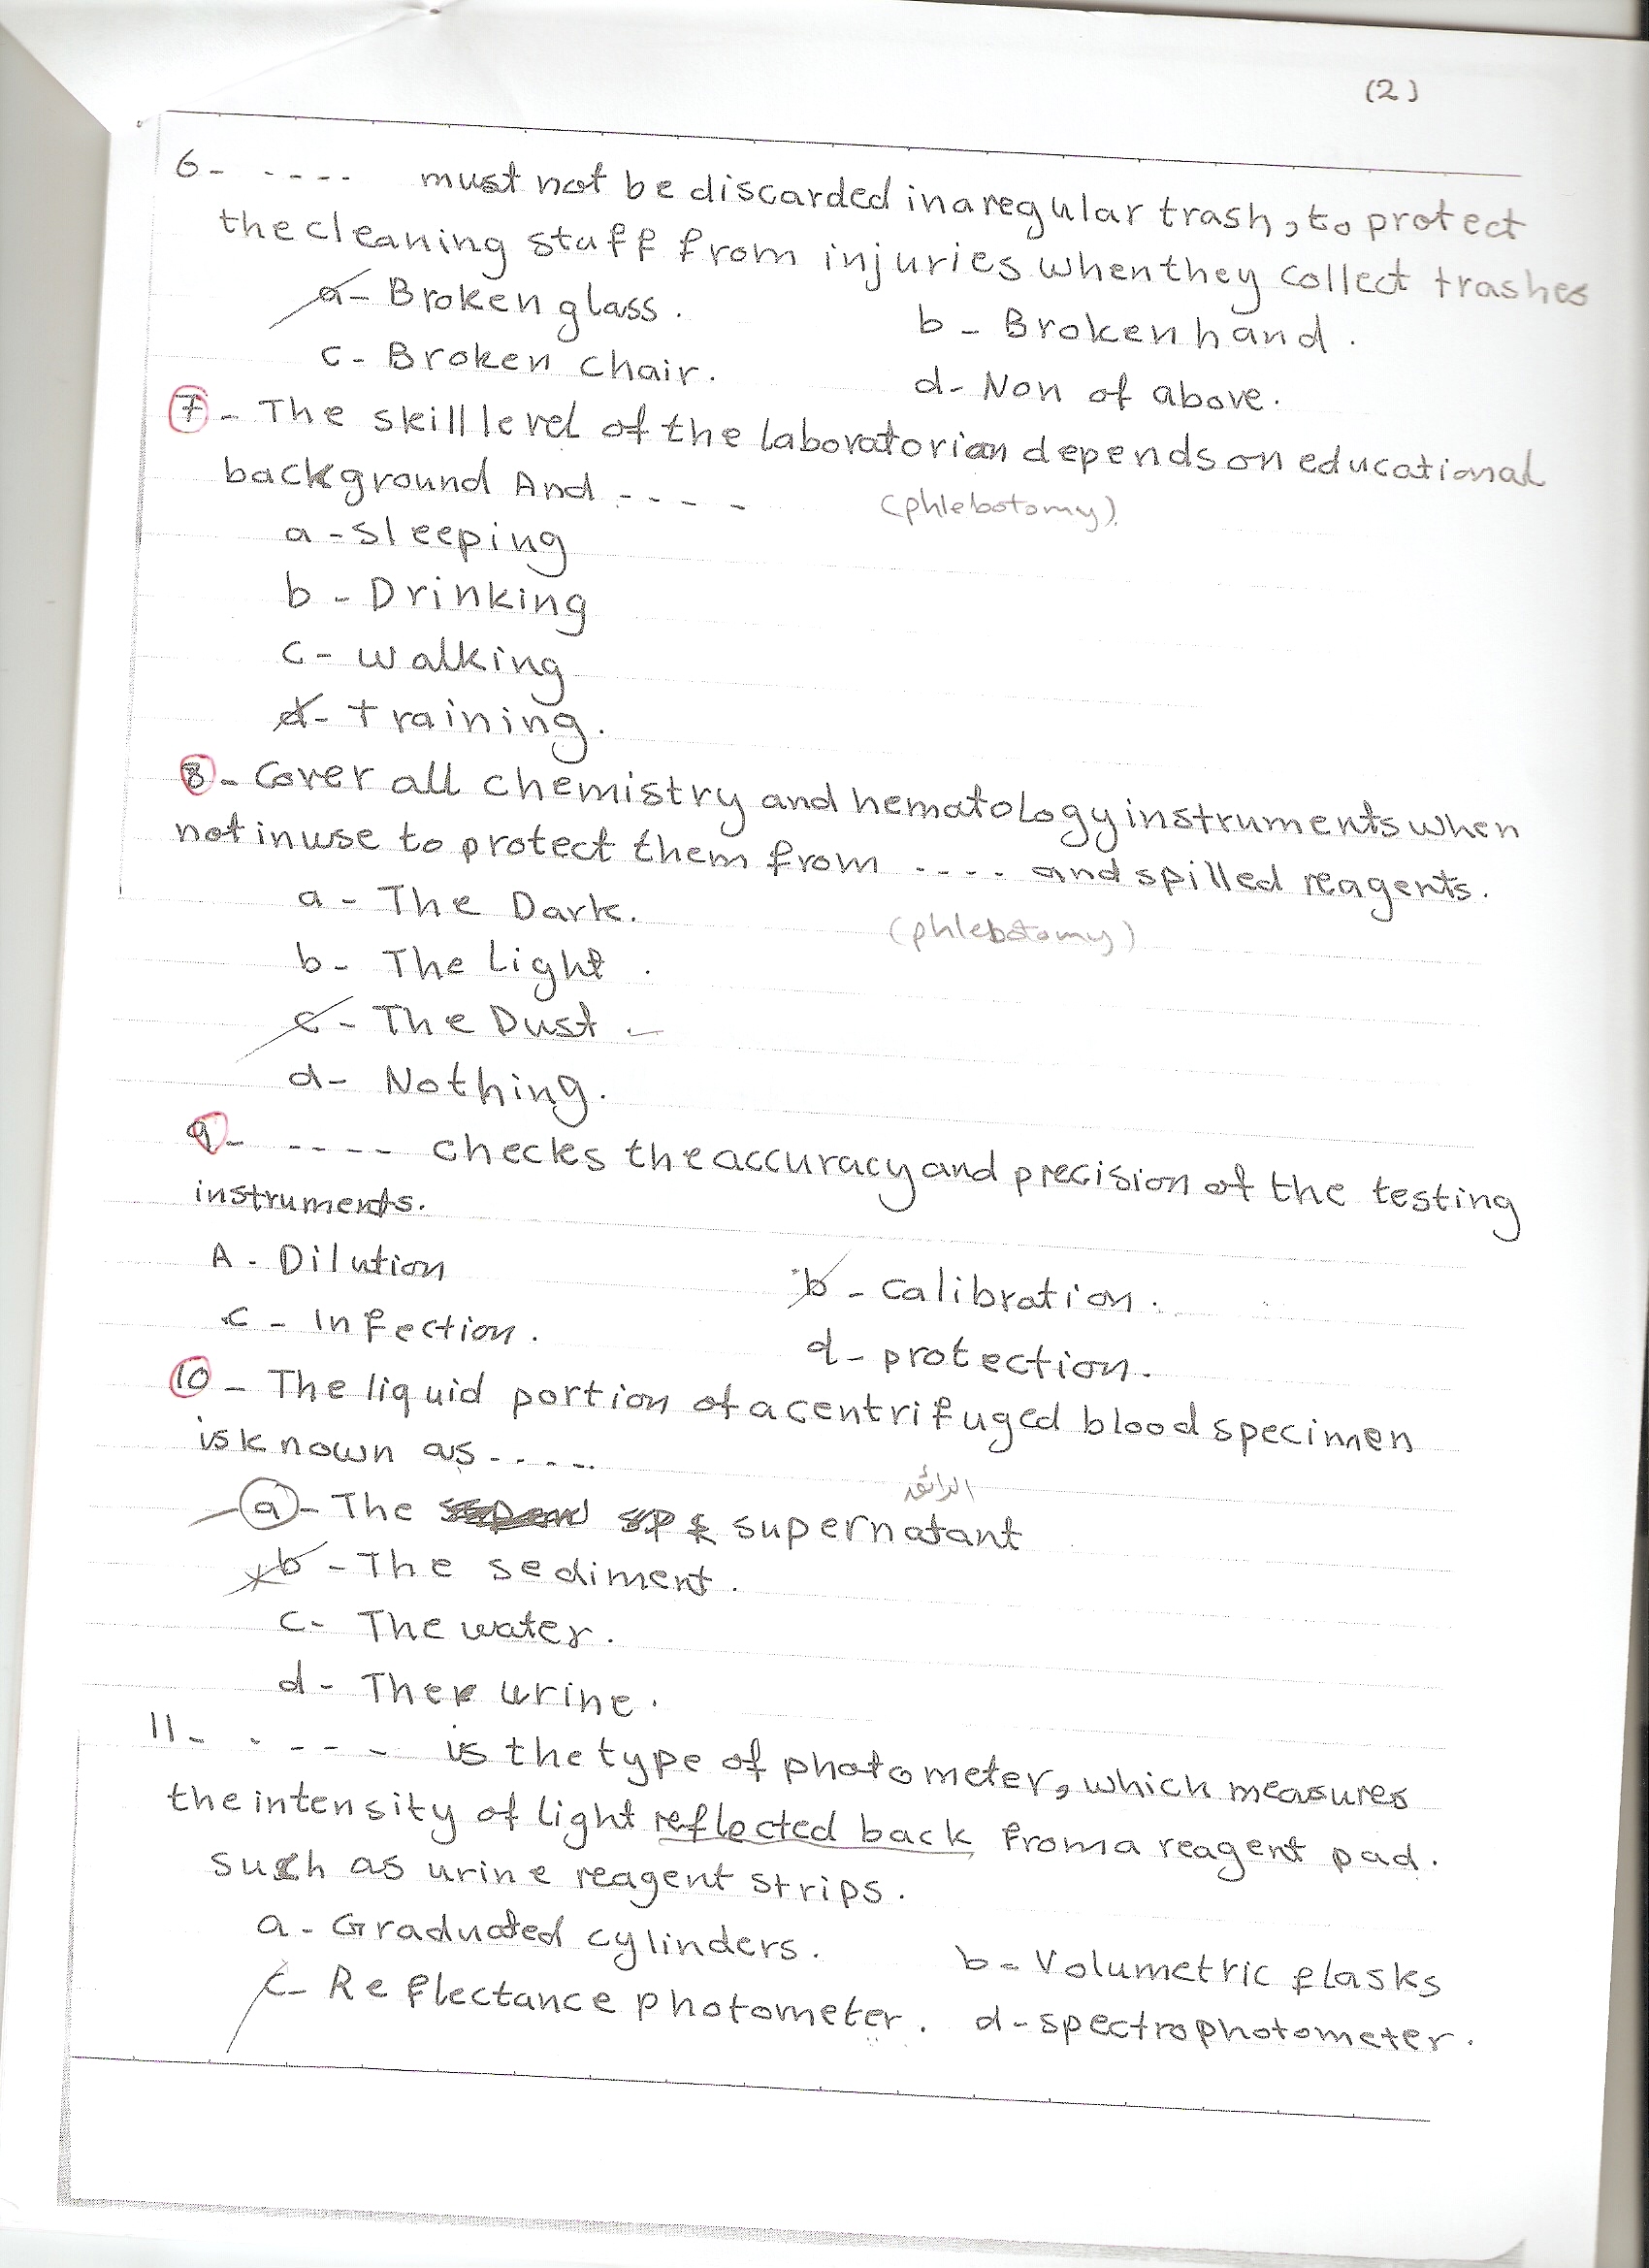 (2)
6- ---- must not be discarded in a regular trash, to protect
the cleaning staff from injuries when they collect trashes
a- Broken glass.
b- Broken hand.
c- Broken chair.
d- Non of above.
7- The skill level of the laboratorian depends on educational
background And ----
(phlebotomy).
a- sleeping
b- Drinking
c- walking
d- training.
8- Cover all chemistry and hematology instruments when
not in use to protect them from ---- and spilled reagents.
(phlebotomy)
a- The Dark.
b- The Light.
c- The Dust.
d- Nothing.
9- ---- checks the accuracy and precision of the testing
instruments.
A- Dilution
b- calibration.
c- Infection.
d- protection.
10- The liquid portion of a centrifuged blood specimen
is known as -----
الرائق
a- The supernatant
b- The sediment.
c- The water.
d- The urine.
11- ---- is the type of photometer, which measures
the intensity of light reflected back from a reagent pad.
such as urine reagent strips.
a- Graduated cylinders.
b- Volumetric flasks
c- Reflectance photometer.
d- spectrophotometer.